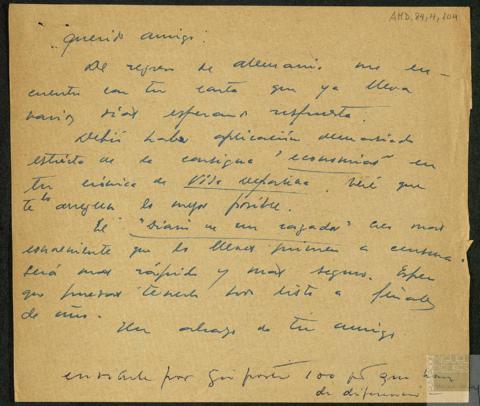 AMD. 84, 4, 104
querido amigo:
De regreso de Alemania me en-
cuentro con tu carta que ya lleva
varios dias esperando respuesta.
Debió haber aplicación demasiado
estricta de la consigna "economias" en
tu crónica de Vida Deportiva. Veré que
te lo arreglen lo mejor posible.
El "Diario de un cazador" creo mas
conveniente que lo lleves primero a censura.
Será mas rápido y mas seguro. Espero
que puedas tenerlo listo a finales
de año.
Un abrazo de tu amigo
por giro postal 100 pts que hay
de diferencia